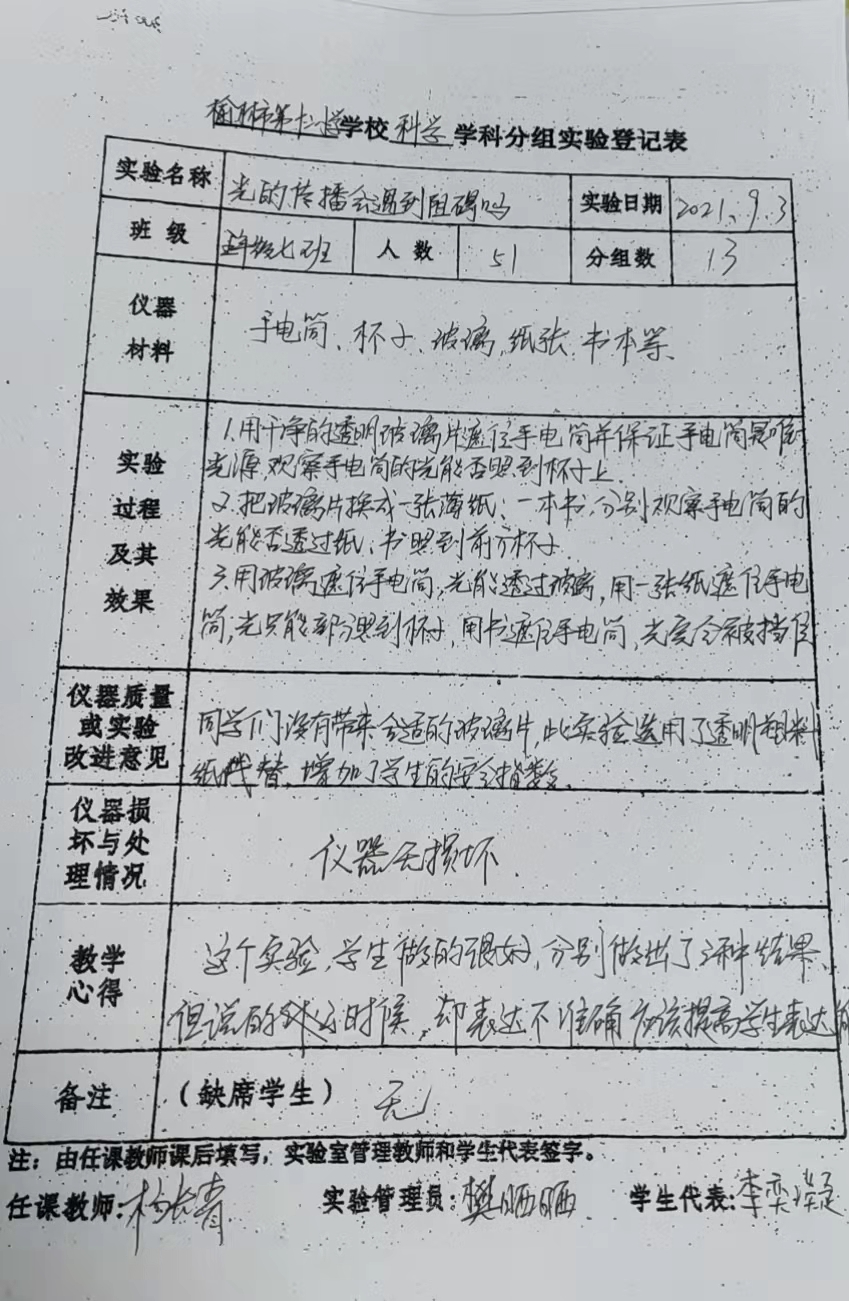 榆林市第十二小学校科学学科分组实验登记表
实验名称 光的传播会遇到阻碍吗 实验日期 2021、9.3
班级 五年级七班 人数 51 分组数 13
仪器材料 手电筒、杯子、玻璃,纸张、书本等、
实验过程及其效果
1.用干净的透明玻璃片遮住手电筒并保证手电筒是唯一
光源,观察手电筒的光能否照到杯子上.
2.把玻璃片换成一张薄纸、一本书,分别观察手电筒的
光能否透过纸、书照到前方杯子.
3.用玻璃遮住手电筒,光能透过玻璃,用一张纸遮住手电
筒,光只能部分照到杯子,用书遮住手电筒,光完全被挡住
仪器质量或实验改进意见
同学们没有带来合适的玻璃片,此实验选用了透明塑料
纸代替,增加了学生的安全指数.
仪器损坏与处理情况 仪器无损坏.
教学心得
这个实验,学生做的很好,分别做出了3种结果、
但说的时候,却表达不准确应该提高学生表达能
备注 (缺席学生) 无
注:由任课教师课后填写,实验室管理教师和学生代表签字。
任课教师:杨长青 实验管理员:樊晒晒 学生代表:李奕凝